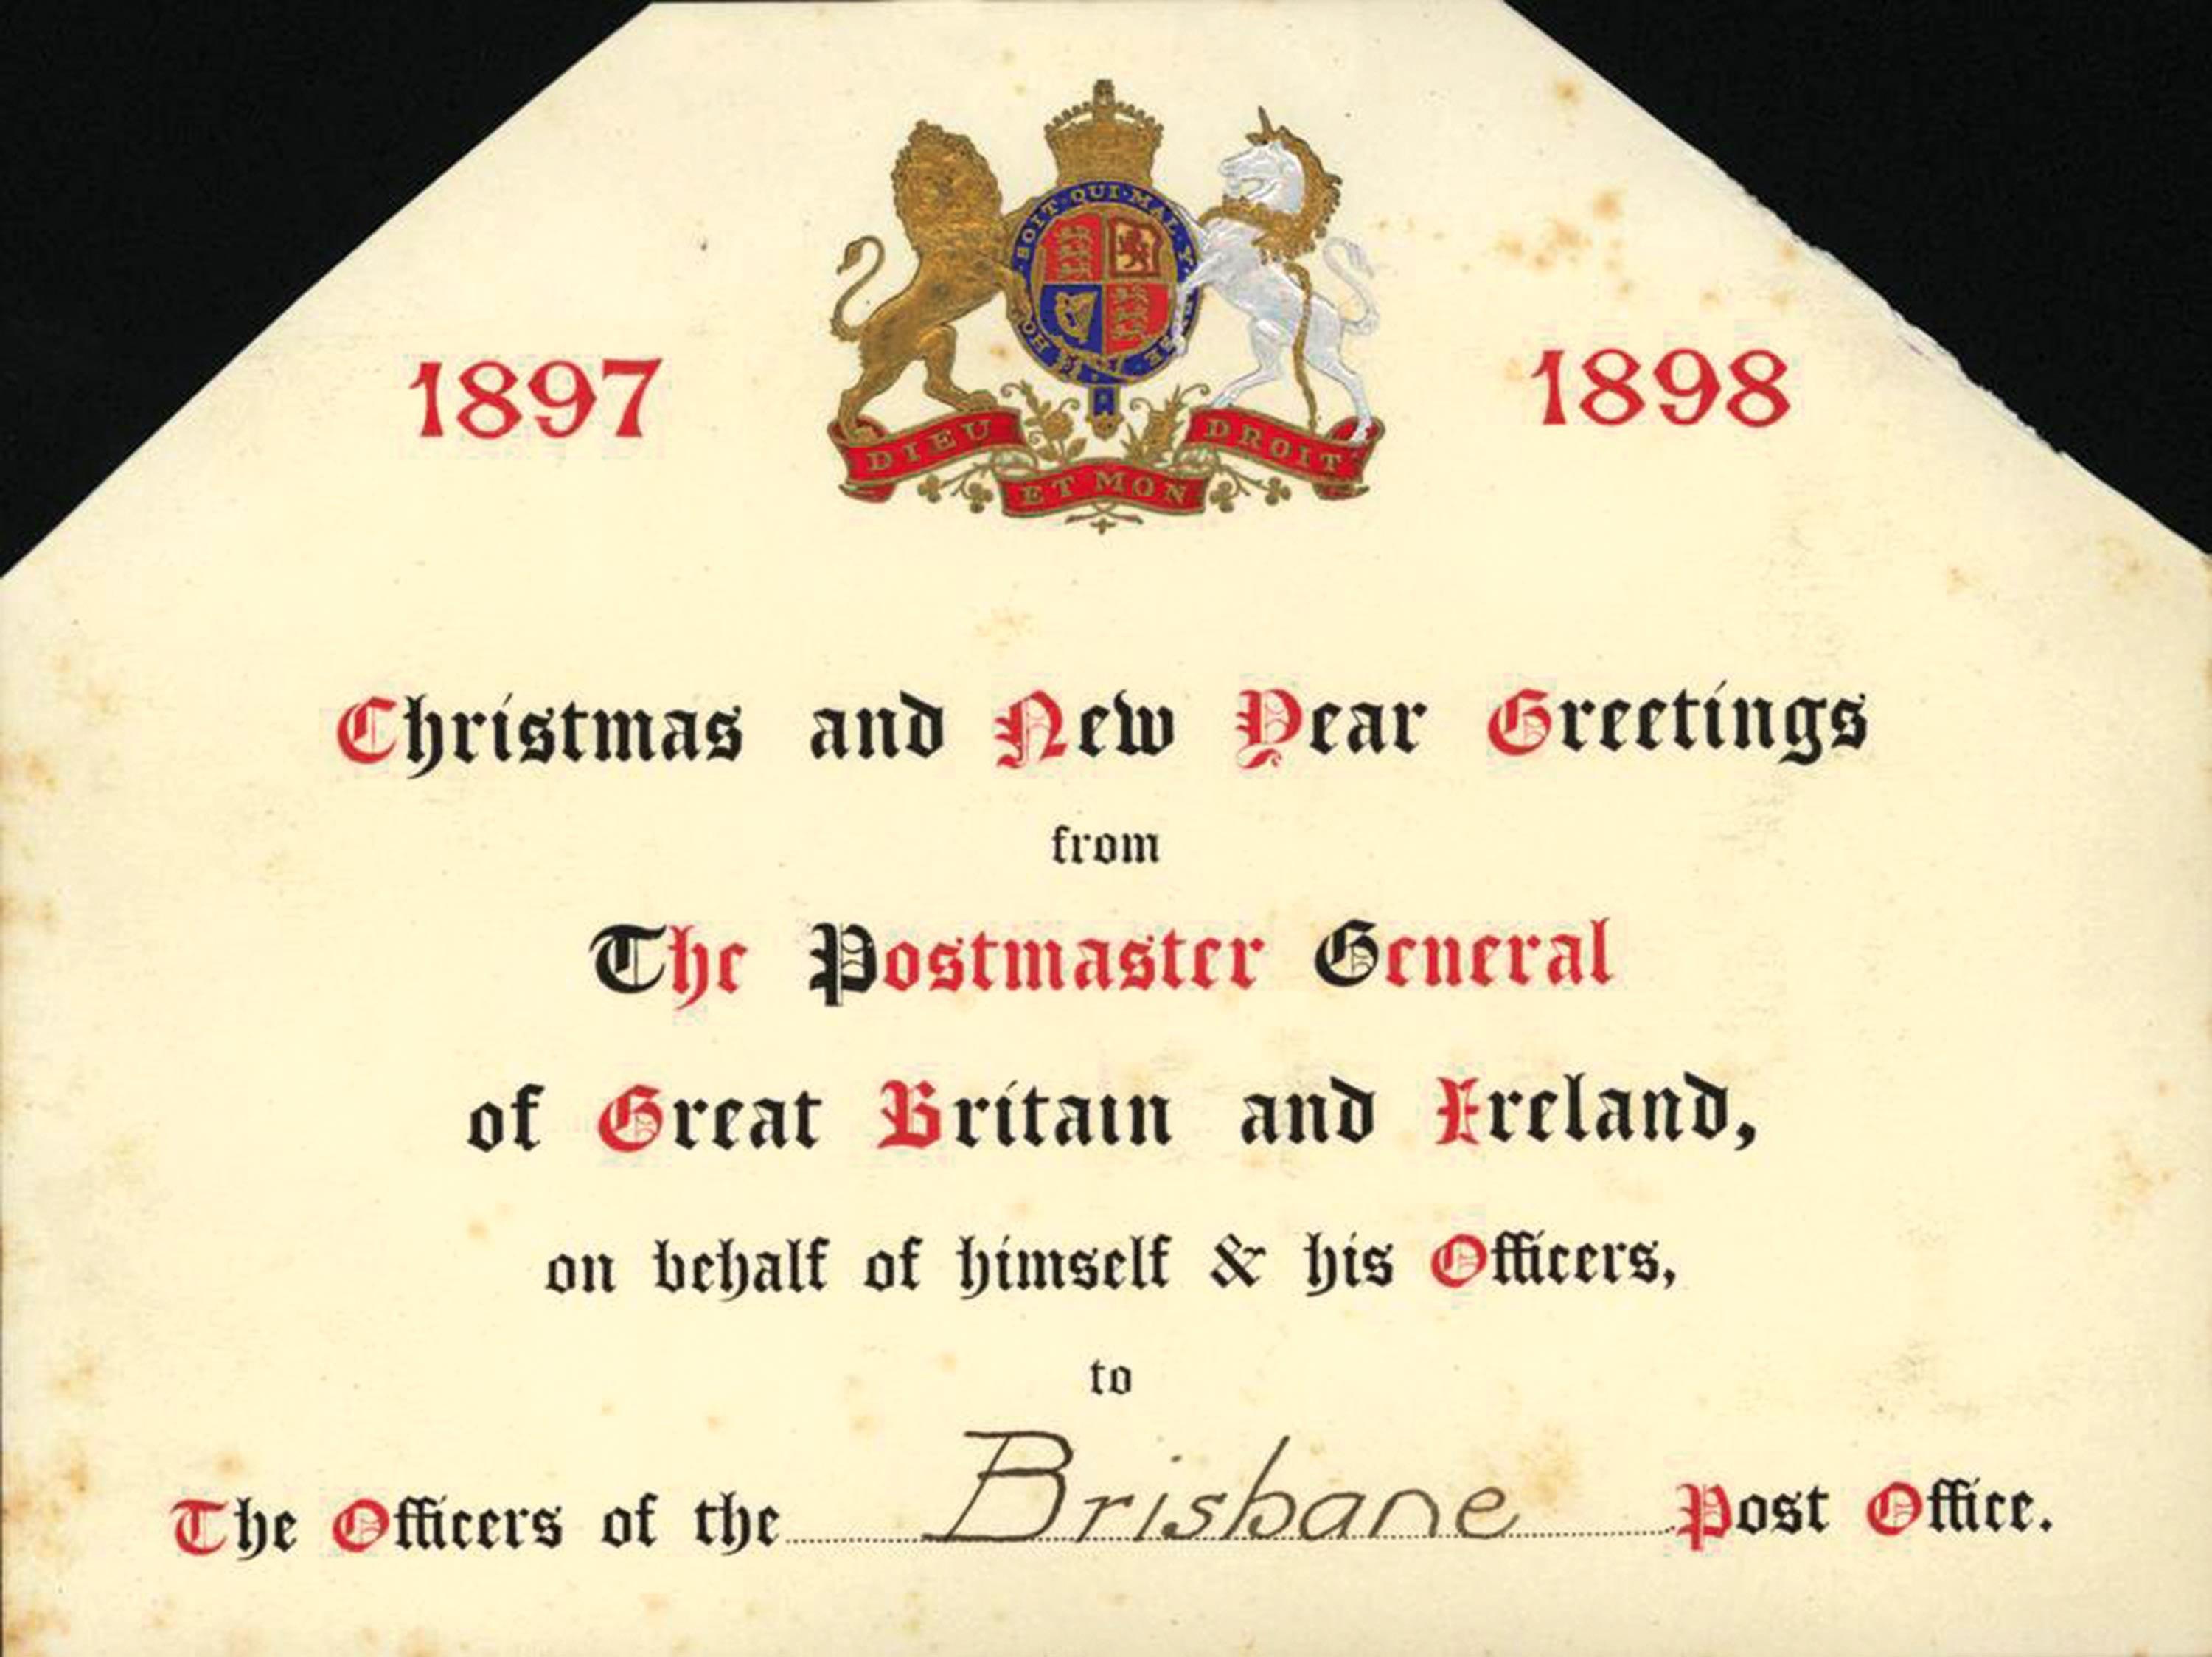 HONI · SOIT · QUI · MAL · Y · PENSE
1897
1898
DIEU ET MON DROIT
Christmas and New Year Greetings
from
The Postmaster General
of Great Britain and Ireland,
on behalf of himself & his Officers,
to
The Officers of the Brisbane Post Office.